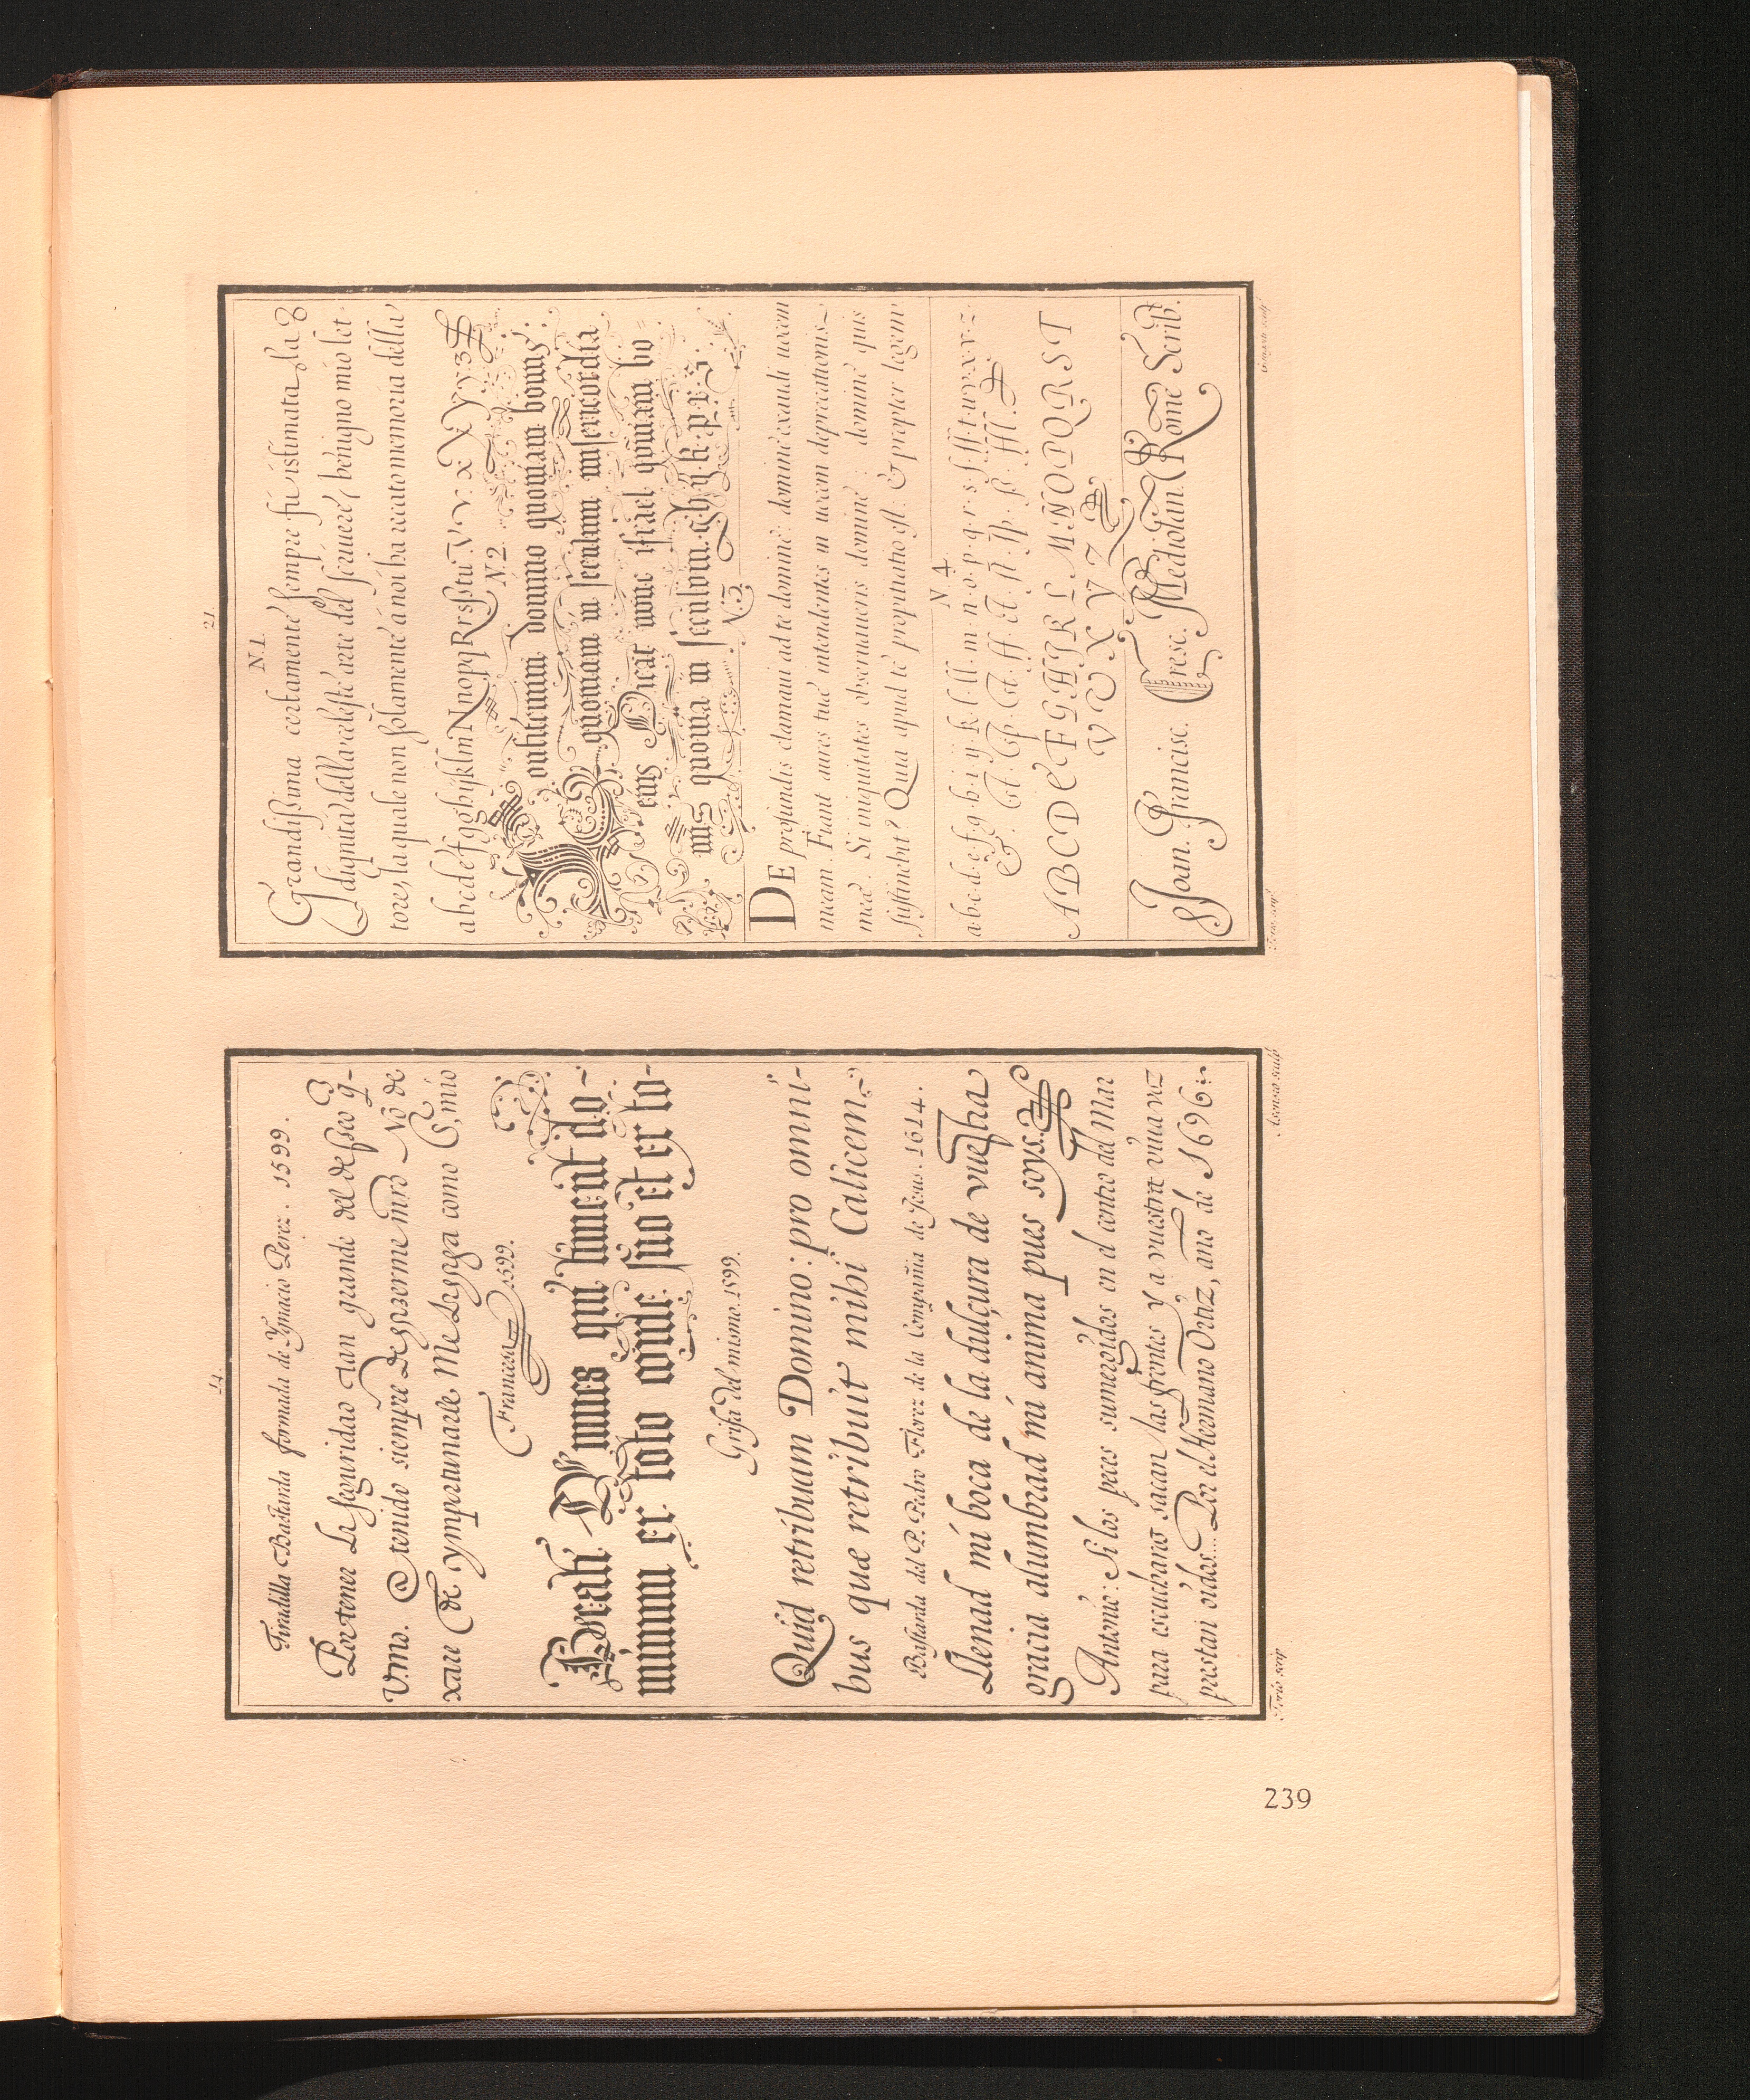 14.
Tiradilla Bastarda formada de Ygnacio Perez. 1599.
Por tener La seguridad tan grande del deseo q-
V.md. @ tenido siempre De hazerme mrd No de
xare de ymportunarle Me Hagga como Sr, mio
Francesa 1599.
Beati Omnes qui timent do-
minum ex toto corde suo et ex to-
Grifa del mismo. 1599.
Quid retribuam Domino: pro omni-
bus quæ retribuit mihi Calicem
Bastarda del P. Pedro Florez de la Compañia de Jesus. 1614.
Llenad mi boca de la dulçura de vuestra
gracia alumbrad mi anima pues soys.
Antonio: Si los peces sumergidos en el centro del Mar
para escucharos sacan las frentes y a vuestra viva voz
prestan oidos... Por el Hermano Ortiz, ano de 1696
Torio scrip.
Asensio sculp.
21.
N. 1.
Grandissima certamente sempre fù istimata, la
dignità della celeste arte del scriuere, benigno mio let
tore, la quale non solamente à noi ha recato memoria della
a b c d e f g g h i j k l m N n o p q R r s ſs t u V v. x X y y 3
N. 2.
onfitemini domino quoniam bonus:
quoniam in seculum misericordia
eius Dicat nunc israel quoniam bo
nus quonia in seculum. g h y k p r s
N. 3.
DE profundis clamaui ad te domine: domine exaudi uocem
meam. Fiant aures tuæ intendentes in uocem deprecationis
meæ. Si iniquitates obseruaueris domine: domine quis
sustinebit? Quia apud te propitiatio est. & propter legem
N. 4.
a·b·c·d·e·f·g·h·i·ij·k·l·ll·m·n·o·p·q·r·s·ſ·ſſ·t·u·v·x·y·z
A B C D E F G H I K L M N O P Q R S T
V U X Y Z
Joan. Francisc. Cresc. Mediolan. Rome Scrib.
Torio scrip.
239